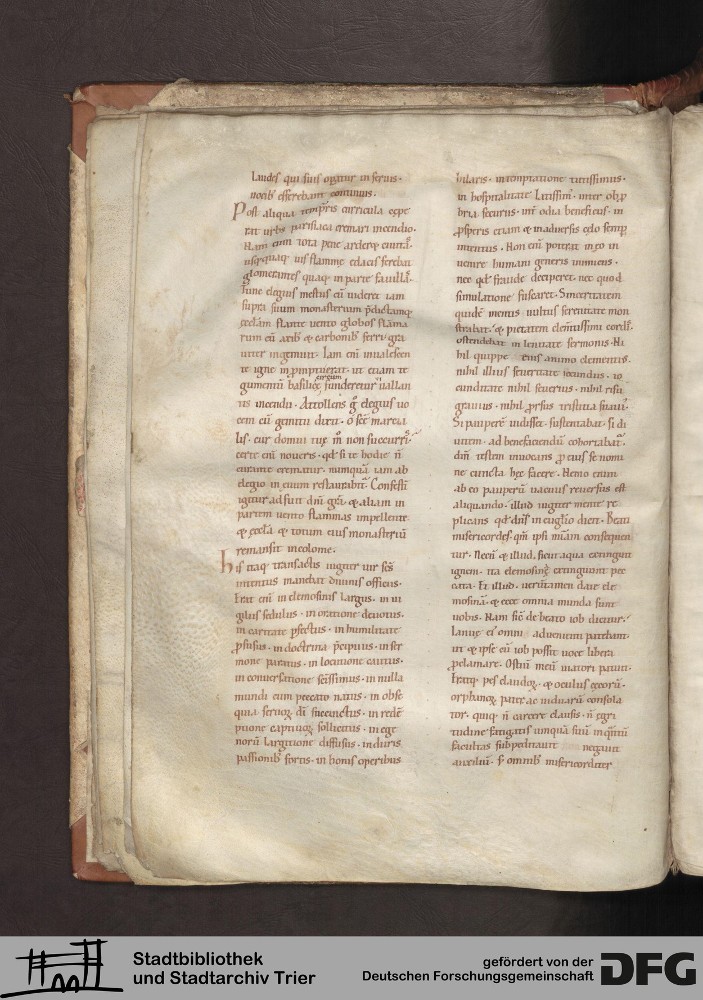 laudes qui suis oratur in seruis.
uocib; efferebant continuis:
Post aliqua temporis curricula cepe
rat urbs parisiaca cremari incendio.
Nam cum tota pene arderet ciuitas.
usq;quaq; uis flamme edacis ferebat
glomerantes quaq; in parte fauillas.
Tunc elegius mestus cu uideret iam
supra suum monasterium
eccłam flante uento globos flāma
rum cū atib; & carbonib; ferri. gra
uiter ingemuit. Iam enī inualescen
te igne in promptu erat. ut etiam te
gumentū basilicę circum funderetur uallan
tis incendii. Attollens g elegius uo
cem cū gemitu dixit. o scē marcia
lis. cur domui tuę m non succurris.
certe enī noueris. qd si te hodie n
curante crematur. numquā iam ab
elegio in euum restaurabit. Confestī
igitur adfuit dnī gra. & aliam in
partem uento flammas impellente
& eccła & totum eius monasteriū
remansit incolome.
His itaq; transactis iugiter uir scs
intentus manebat diuinis officiis.
Erat enī in elemosinis largus. in ui
giliis sedulus. in oratione deuotus.
in caritate pfectus. in humilitate
pfusus. in doctrina precipuus. in ser
mone paratus. in locutione cautus.
in conuersatione scissimus. in nulla
mundi cum peccato natus. in obse
quia seruoꝝ dī succinctus. in redē
ptione captiuoꝝ sollicitus. in ege
norū largitione diffusus. in duris
passionib; fortis. in bonis operibus
hilaris. in temptatione tutissimus.
in hospitalitate latissim. inter obp
bria securus. int odia beneficus. in
psperis etiam & in aduersis cęlo semp
intentus. Non enī poterat in eo in
uenire humani generis inimicus.
nec qd fraude deciperet. nec quod
simulatione fuscaret. Sinceritatem
quidē mentis uultus serenitate mon
strabat. & pietatem clemtissimi cordis.
ostendebat in lenitate sermonis. Ni
hil quippe eius animo clementius.
nihil illius seueritate iocundius. io
cunditate nihil seuerius. nihil risu
grauius. nihil prsus tristitia suaui.
Si paupere uidisset. sustentabat. si di
uitem. ad benefaciendū cohortabat.
dm testem inuocans p eius se nomi
ne cuncta hęc facere. Nemo enim
ab eo pauperū uacuus reuersus est
aliquando. illud iugiter mente re
plicans qd dns in euglio dicit. Beati
misericordes qm ipsi mīam consequen
tur. Necn & illud. sicut aqua extinguit
ignem. ita elemosinę extinguunt pec
cata. Et illud. uerutamen date ele
mosinā. & ecce omnia munda sunt
uobis. Nam sic de beato iob dicitur.
Lanue ei omni aduenienti patebant.
ut & ipse cū iob possit uoce libera
pclamare. Ostiū meū uiatori patuit.
Fuitq; pes claudoꝝ. & oculus cęcorū.
orphanoꝝ pater ac uiduarū consola
tor. quiq; n carcere clausis. n egri
tudine fatigatis umquā suū in quntū
facultas subpeditauit negauit
auxiliū. s omnib; misericorditer
Stadtbibliothek
und Stadtarchiv Trier
gefördert von der
Deutschen Forschungsgemeinschaft
DFG